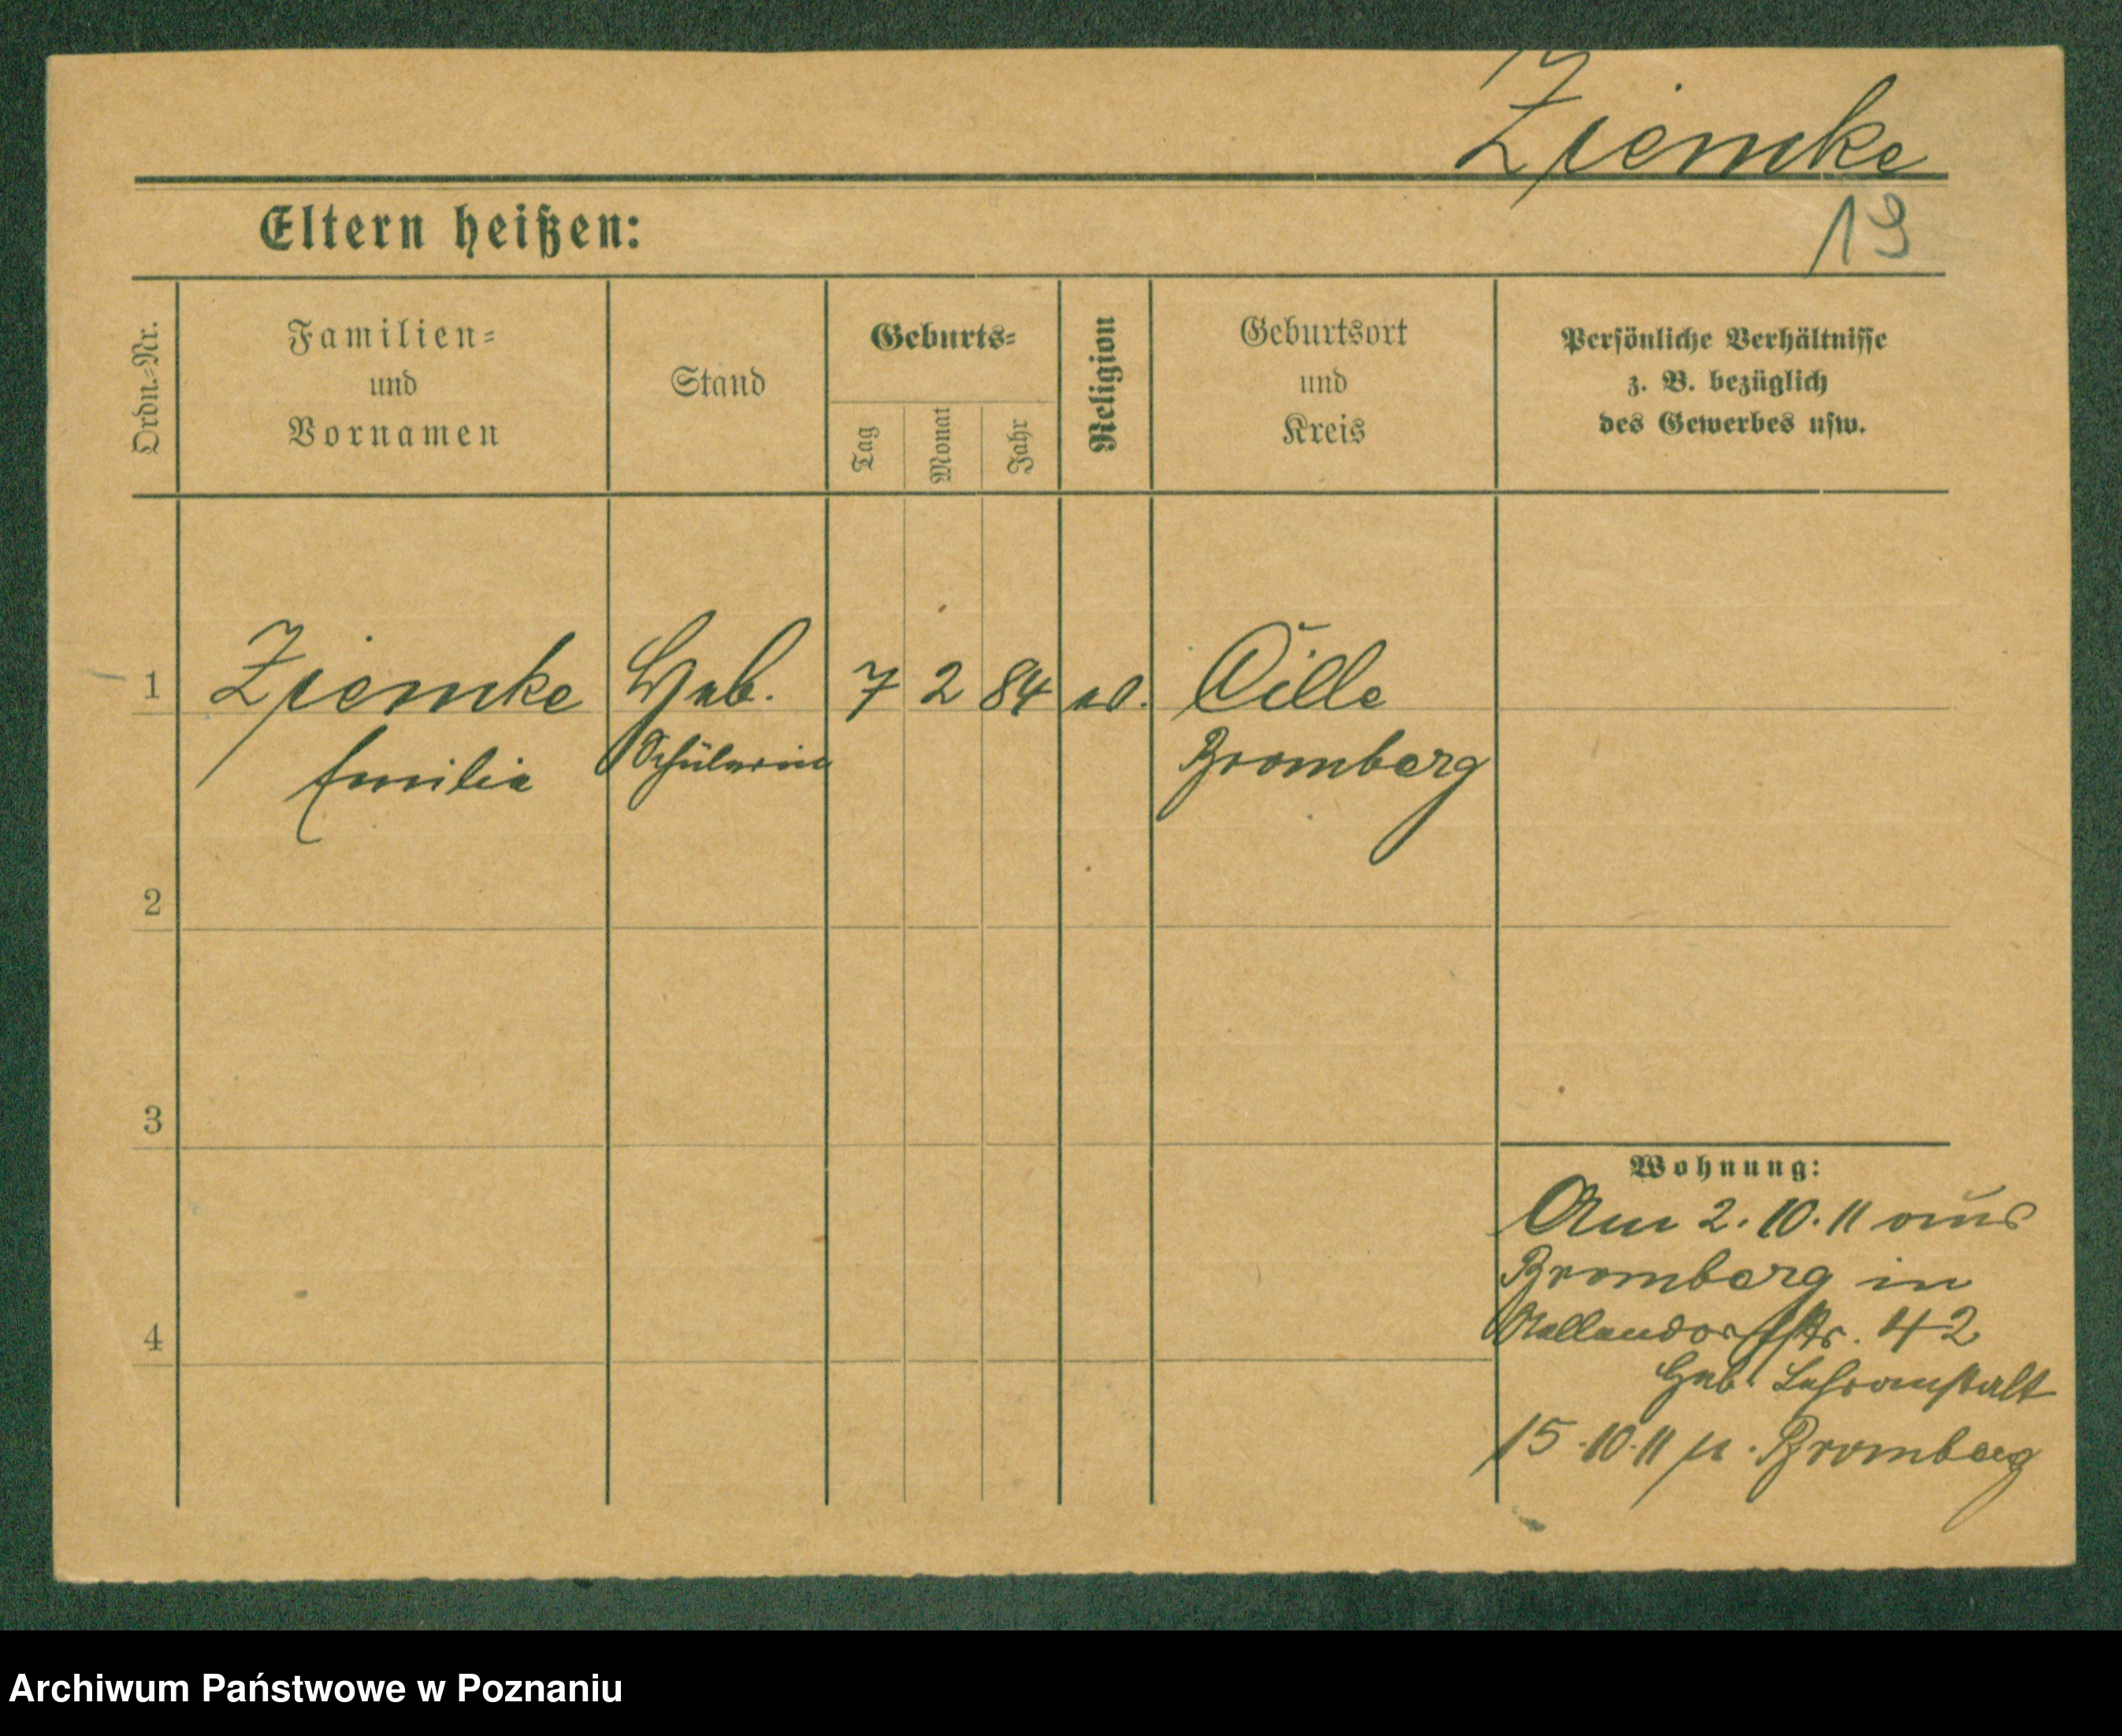 Ziemke
19
Eltern heißen:
Ordn.=Nr.
Familien=
und
Vornamen
Stand
Geburts=
Tag
Monat
Jahr
Religion
Geburtsort
und
Kreis
Persönliche Verhältnisse
z. B. bezüglich
des Gewerbes usw.
1 Ziemke Heb. 7 2 84 ev. Cille
Emilie Schülerin Bromberg
2
3
4
Wohnung:
Am 2.10.11 aus
Bromberg in
42
Heb. Lehranstalt
15.10.11 n. Bromberg
Archiwum Państwowe w Poznaniu